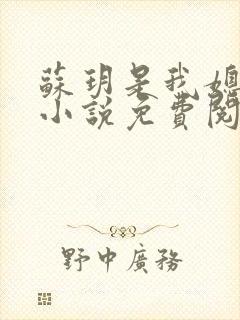 蘇玥是我媳
小說免費閱
野中廣務